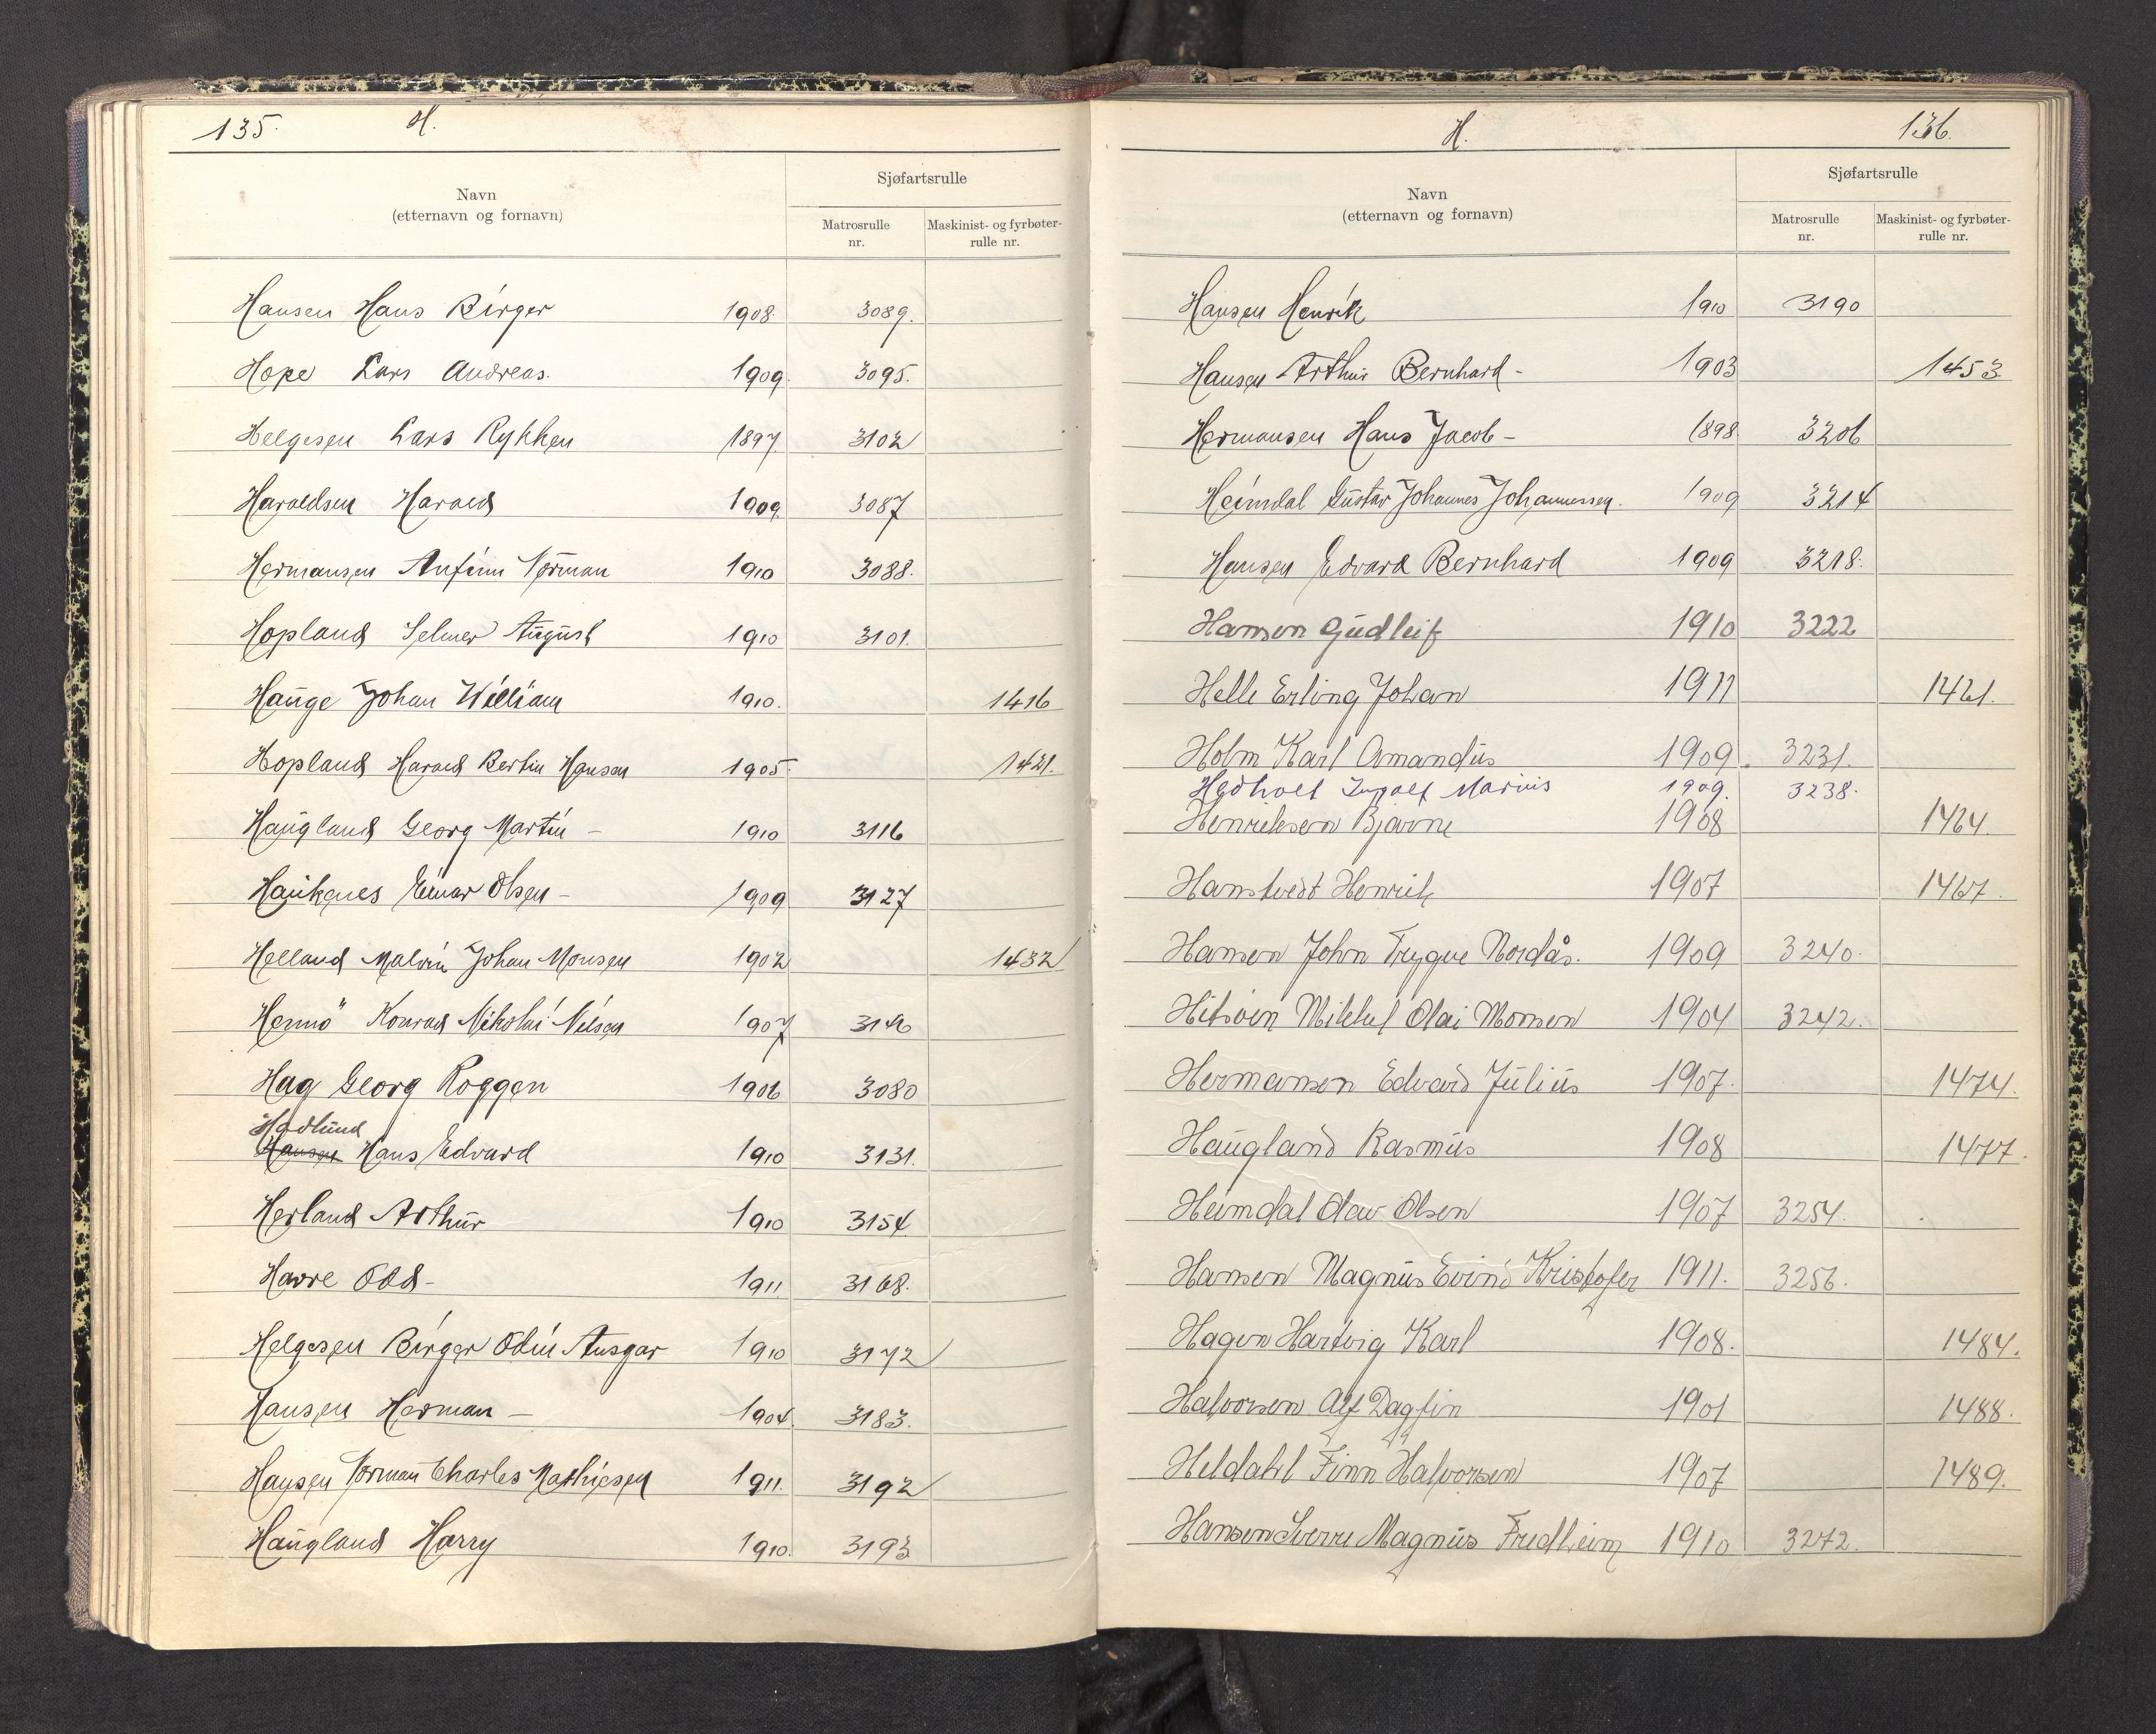 135. H.
Navn
(etternavn og fornavn)
Sjøfartsrulle
Matrosrulle
nr.
Maskinist- og fyrbøter-
rulle nr.
Hansen Hans Birger 1908 3089.
Hope Lars Andreas. 1909. 3095.
Helgesen Lars Rykken 1897. 3102
Haraldsen Harald 1909. 3087
Hermansen Anfinn Norman 1910 3088.
Hopland Selmer August 1910 3101.
Hauge Johan William 1910. 1416
Hopland Harald Bertin Hansen 1905. 1421.
Haugland Georg Martin – 1910 3116
Haukenes Einar Olsen – 1909 3127
Helland Malvin Johan Monsen 1902 1432
Hennö Konrad Nikolai Nilsen 1907
Hag Georg Roggen 1906 3080
Hadlund
Hansen Hans Edvard 1910 3131.
Herland Arthur 1910 3154
Havre Odd – 1911 3168.
Helgesen Birger Odin Ansgar 1910 3172
Hansen Herman – 1904. 3183.
Hansen Norman Charles Mathiesen 1911. 3192
Haugland Harry 1910. 3193
H. 136.
Navn
(etternavn og fornavn)
Sjøfartsrulle
Matrosrulle
nr.
Maskinist- og fyrbøter-
rulle nr.
Hansen Henrik 1910 3190
Hansen Arthur Bernhard – 1903 1453
Hermansen Hans Jacob – 1898 3206
Heimdal Gustav Johannes Johannessen. 1909 3214
Hansen Edvard Bernhard 1909 3218.
Hansen Gudleif 1910 3222
Helle Erling Johan 1911 1461.
Holm Karl Amandus 1909. 3231.
Hedholt Ingolf Marius 1909. 3238.
Henriksen Bjarne 1908 1464.
Hamstvedt Henrik 1907 1467.
Hansen John Trygve Nordås. 1909 3240.
Mikkel Olai Monsen 1904 3242.
Hermansen Edvard Julius 1907. 1474.
Haugland Rasmus 1908 1477.
Heimdal Olav Olsen 1907 3254.
Hansen Magnus Evind Kristofer 1911. 3256.
Hagen Hartvig Karl 1908. 1484.
Halvorsen Alf Dagfin 1901 1488.
Heldahl Finn Halvorsen 1907 1489.
Hansen Sverre Magnus Fredheim 1910 3272.